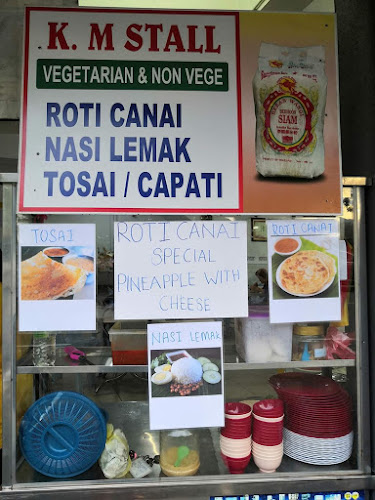 K. M STALL
VEGETARIAN & NON VEGE
ROTI CANAI
NASI LEMAK
TOSAI / CAPATI
SIAM
TOSAI
ROTI CANAI
SPECIAL
PINEAPPLE WITH
CHEESE
ROTI CANAI
NASI LEMAK